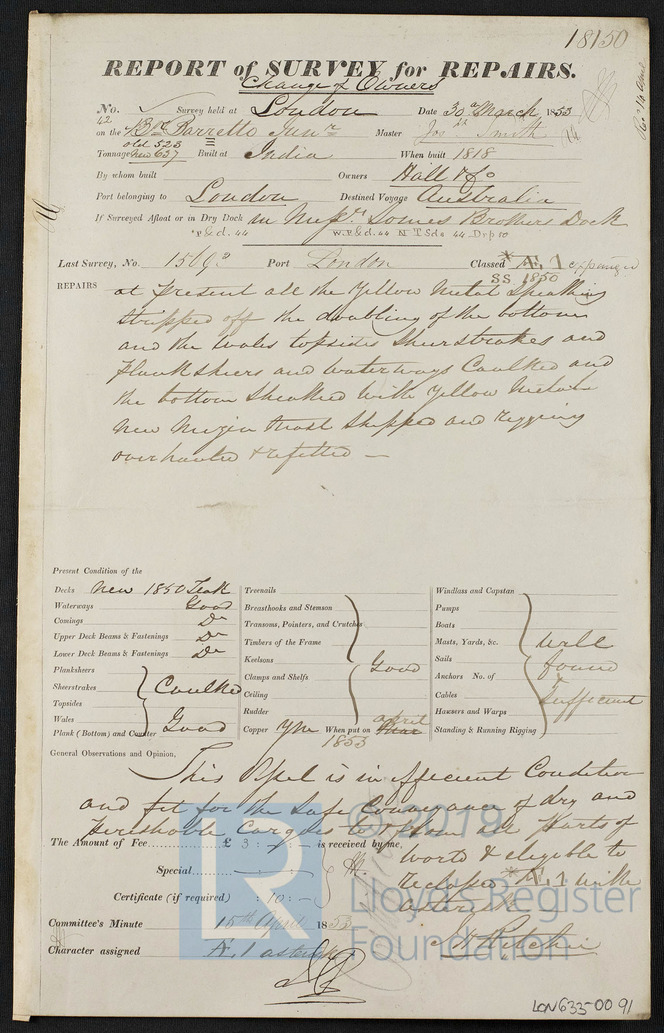 18150
REPORT of SURVEY for REPAIRS.
Change of Owners
No. Survey held at London Date 30th March, 1853
42
on the Bk Barretto Junr Master Jos Smith
old 523
Tonnage New 637 Built at India When built 1818
By whom built Owners Hall & Co
Port belonging to London Destined Voyage Australia
If Surveyed Afloat or in Dry Dock in Messrs Somes Brothers Dock
P&d. 44 W.P&d. 44 N T Sds 44 Drp 50
Last Survey, No. Port London Classed *Æ 1 expunged
SS 1850
REPAIRS at present all the Yellow Metal Sheathing
stripped off the doubling of the bottom
and the wales topsides Sheerstrakes and
Planksheers and waterways Caulked and
the bottom Sheathed with Yellow Metal
New Mizen Mast Shipped and rigging
overhauled & refitted —
Present Condition of the
Decks New 1850 Teak
Waterways Good
Comings Do
Upper Deck Beams & Fastenings Do
Lower Deck Beams & Fastenings Do
Planksheers
Sheerstrakes Caulked
Topsides
Wales
Plank (Bottom) and Counter Good
Treenails
Breasthooks and Stemson
Transoms, Pointers, and Crutches
Timbers of the Frame
Keelsons
Clamps and Shelfs Good
Ceiling
Rudder
Copper YM When put on April
1853
Windlass and Capstan
Pumps
Boats
Masts, Yards, &c. well
Sails found
Anchors No. of
Cables Sufficient
Hawsers and Warps
Standing & Running Rigging
General Observations and Opinion,
This Vessel is in efficient Condition
and fit for the Safe Conveyance of dry and
Perishable Cargoes to & from all Parts of
world & eligible to
*Æ 1 with
asterisk
The Amount of Fee £ 3 : - : - is received by me,
Special
Certificate (if required) : 10 : -
J Ritchie
Committee's Minute 15th April 1853
Character assigned Æ 1 asterisk
© 2019
Lloyd's Register
Foundation
LON633-0091